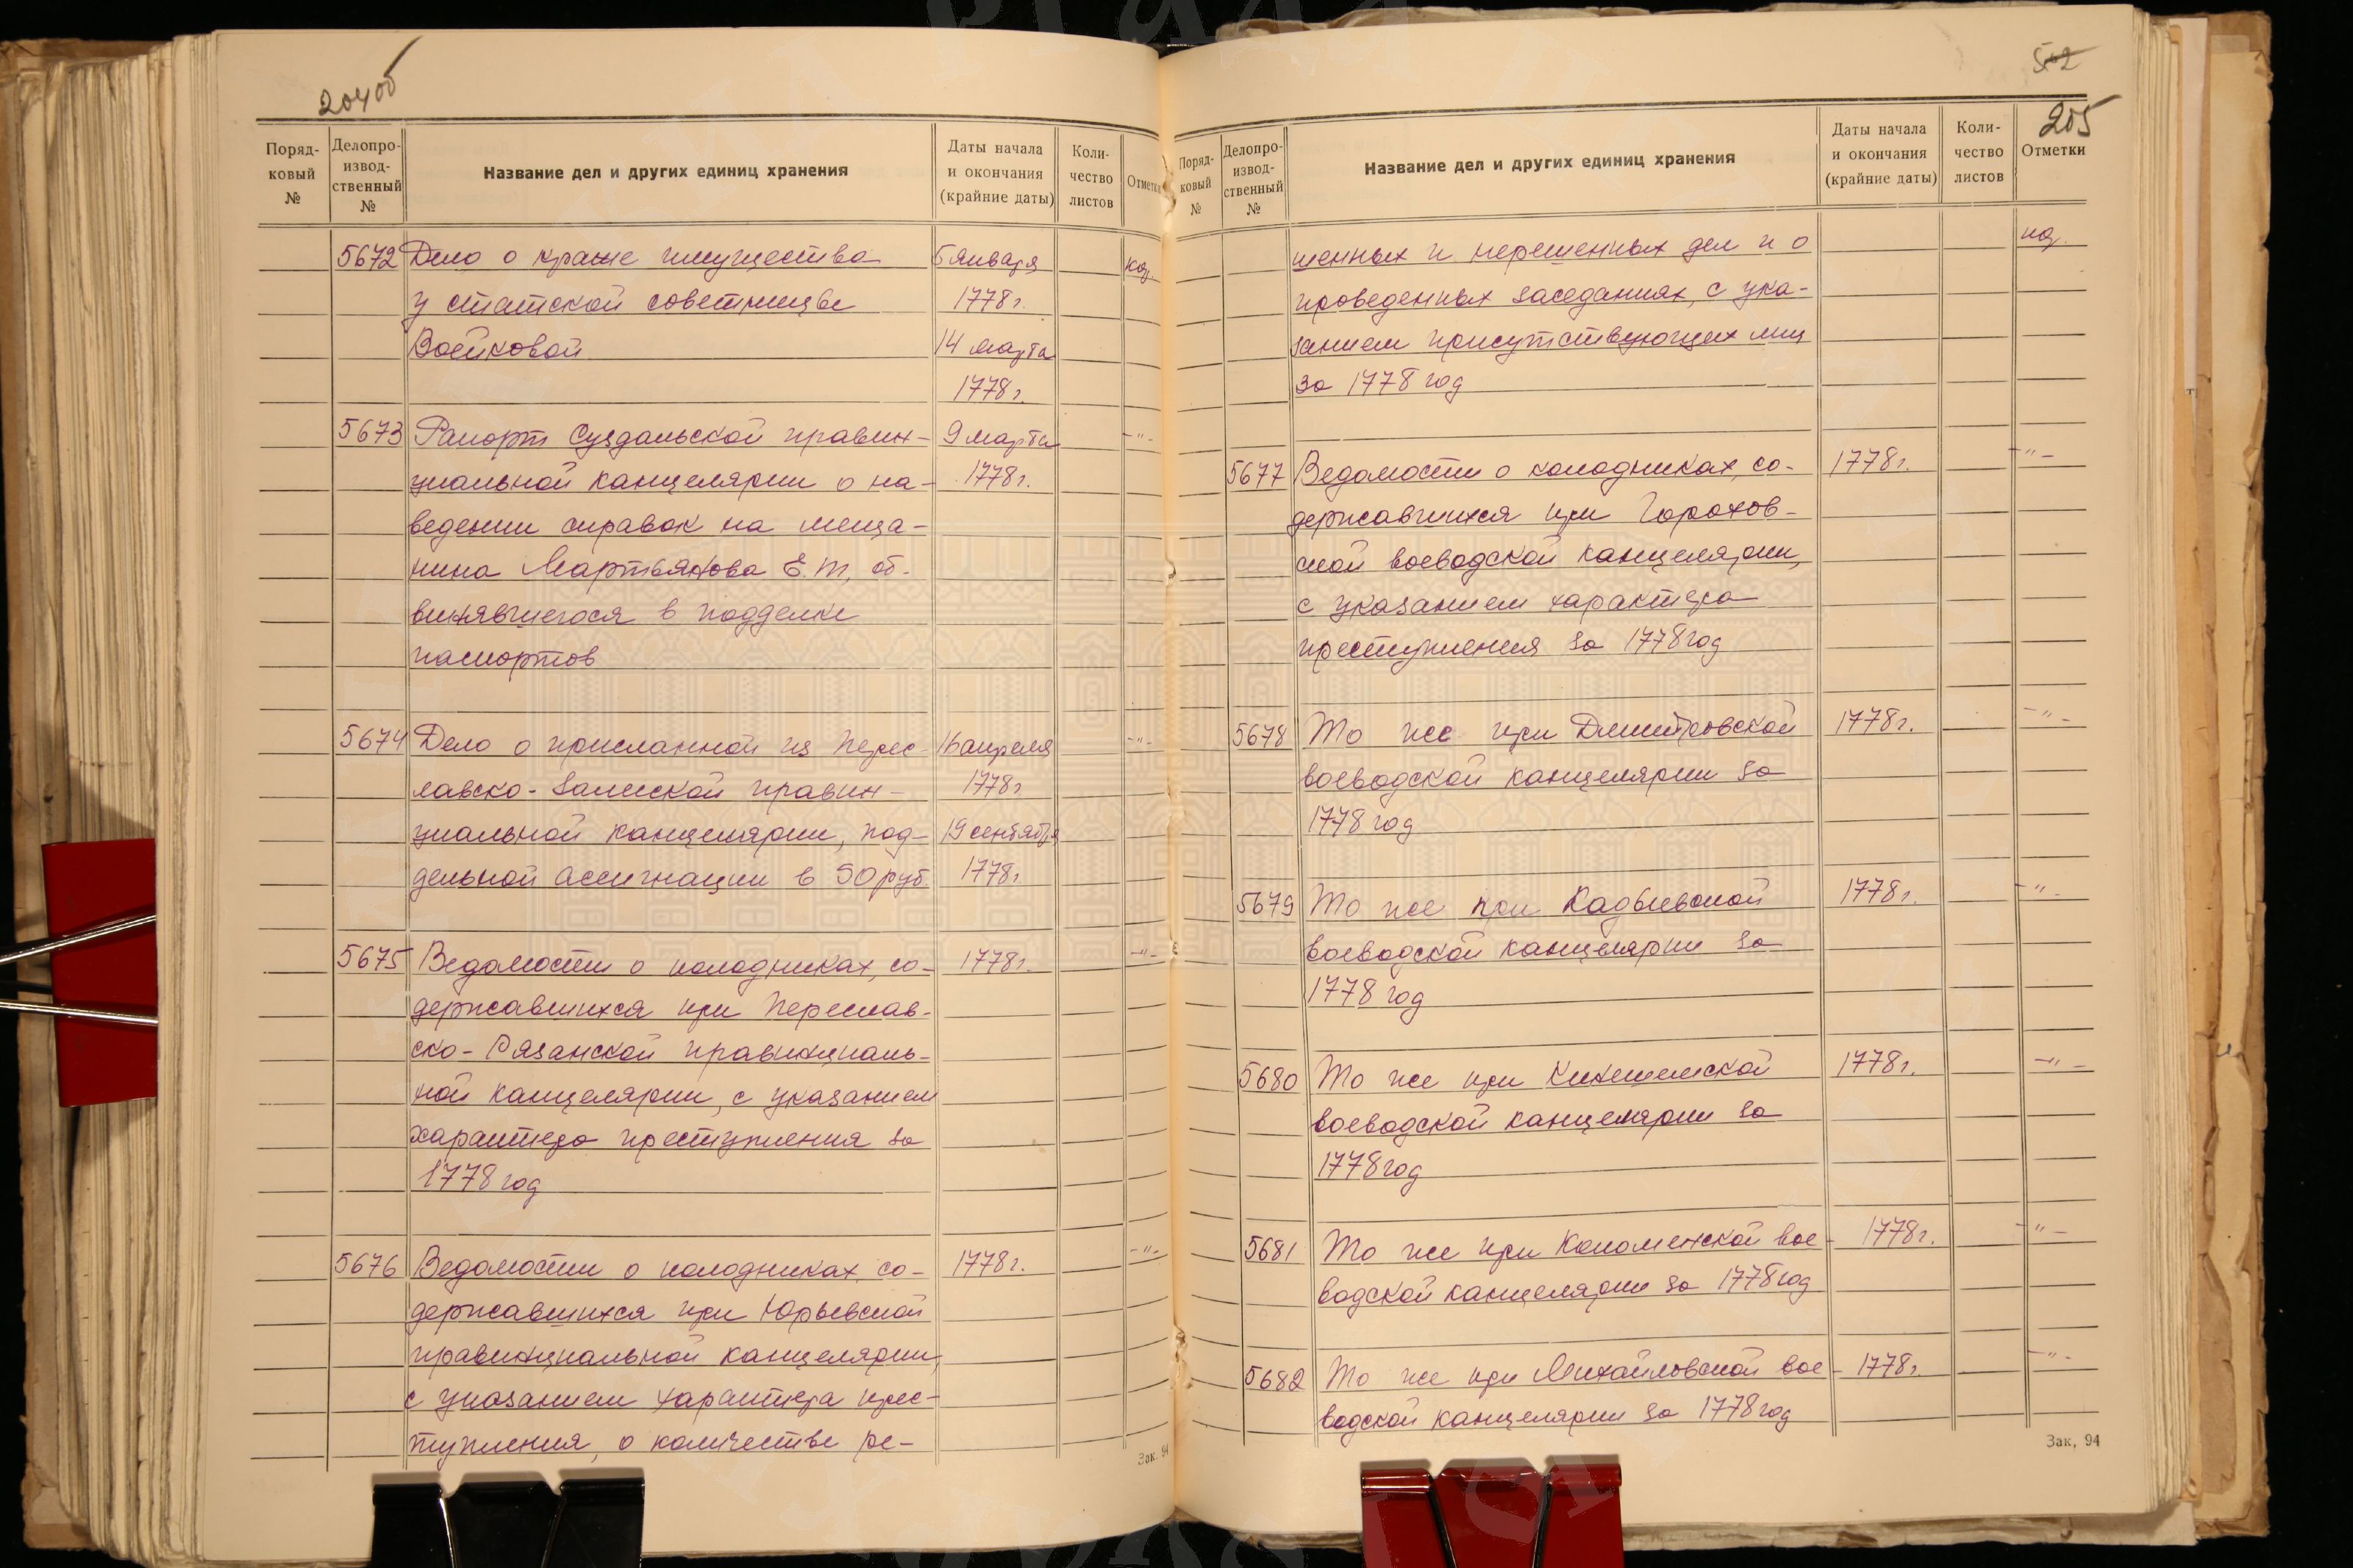 204об
Поряд-
ковый
№
Делопро-
извод-
ственный
№
Название дел и других единиц хранения
Даты начала
и окончания
(крайние даты)
Коли-
чество
листов
Отметки
5672 Дело о краже имущества 5 января
у статской советницы 1778 г.
Воейковой 14 марта
1778 г.
5673 Рапорт Суздальской правин- 9 марта -"-
циальной канцелярии о на- 1778 г.
ведении справок на меща-
нина Мартьянова Е.Т., об-
винявшегося в подделке
паспортов
5674 Дело о присланной из Перес- 16 апреля -"-
лавско-Залесской правин- 1778 г
циальной канцелярии, под- 19 сентября
дельной ассигнации в 50 руб. 1778 г
5675 Ведомости о колодниках, со- 1778 г. -"-
державшихся при Переслав-
ско-Рязанской правинциаль-
ной канцелярии, с указанием
характера преступления за
1778 год
5676 Ведомости о колодниках, со- 1778 г. -"-
державшихся при Юрьевской
правинциальной канцелярии,
с указанием характера прес-
тупления, о количестве ре-
Зак. 94
502
205
Поряд-
ковый
№
Делопро-
извод-
ственный
№
Название дел и других единиц хранения
Даты начала
и окончания
(крайние даты)
Коли-
чество
листов
Отметки
шенных и нерешенных дел и о
проведенных заседаниях, с ука-
занием присутствующих лиц
за 1778 год
5677 Ведомости о колодниках, со- 1778 г. -"-
державшихся при Горохов-
ской воеводской канцелярии,
с указанием характера
преступления за 1778 год
5678 То же при Дмитровской 1778 г. -"-
воеводской канцелярии за
1778 год
5679 То же при Кадыевской 1778 г. -"-
воеводской канцелярии за
1778 год
5680 То же при Кинешемской 1778 г. -"-
воеводской канцелярии за
1778 год
5681 То же при Коломенской вое- 1778 г. -"-
водской канцелярии за 1778 год
5682 То же при Михайловской вое- 1778 г. -"-
водской канцелярии за 1778 год
Зак. 94